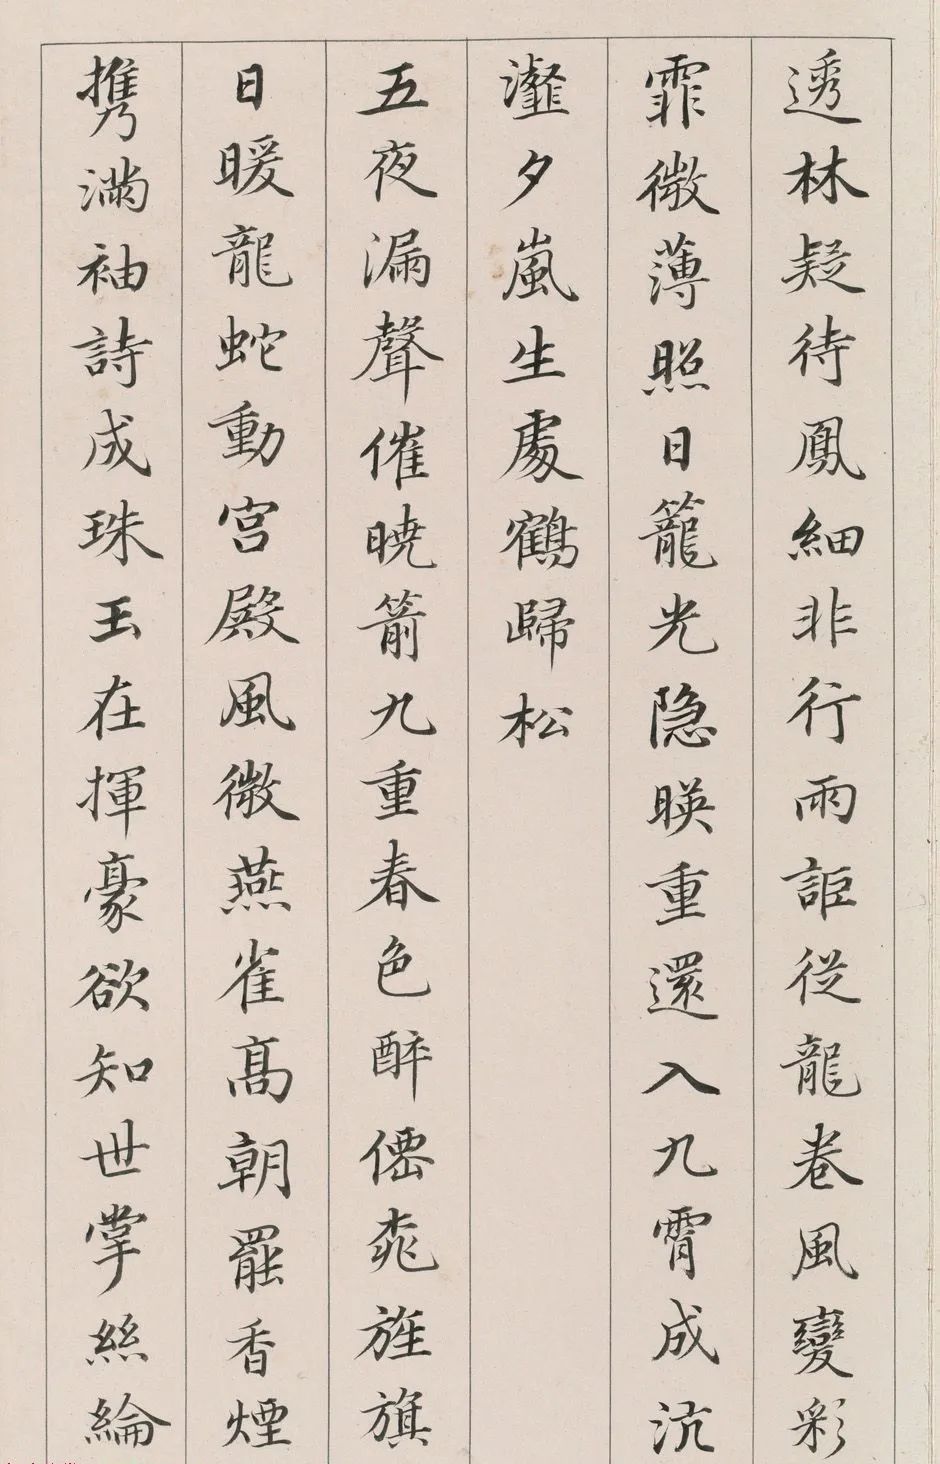 透林疑待鳳細非行雨詎從龍卷風變彩
霏微薄照日籠光隐暎重還入九霄成沆
瀣夕嵐生處鶴歸松
五夜漏聲催曉箭九重春色醉僊桃旌旗
日暖龍蛇動宮殿風微燕雀髙朝罷香煙
携滿袖詩成珠玉在揮豪欲知世掌絲綸